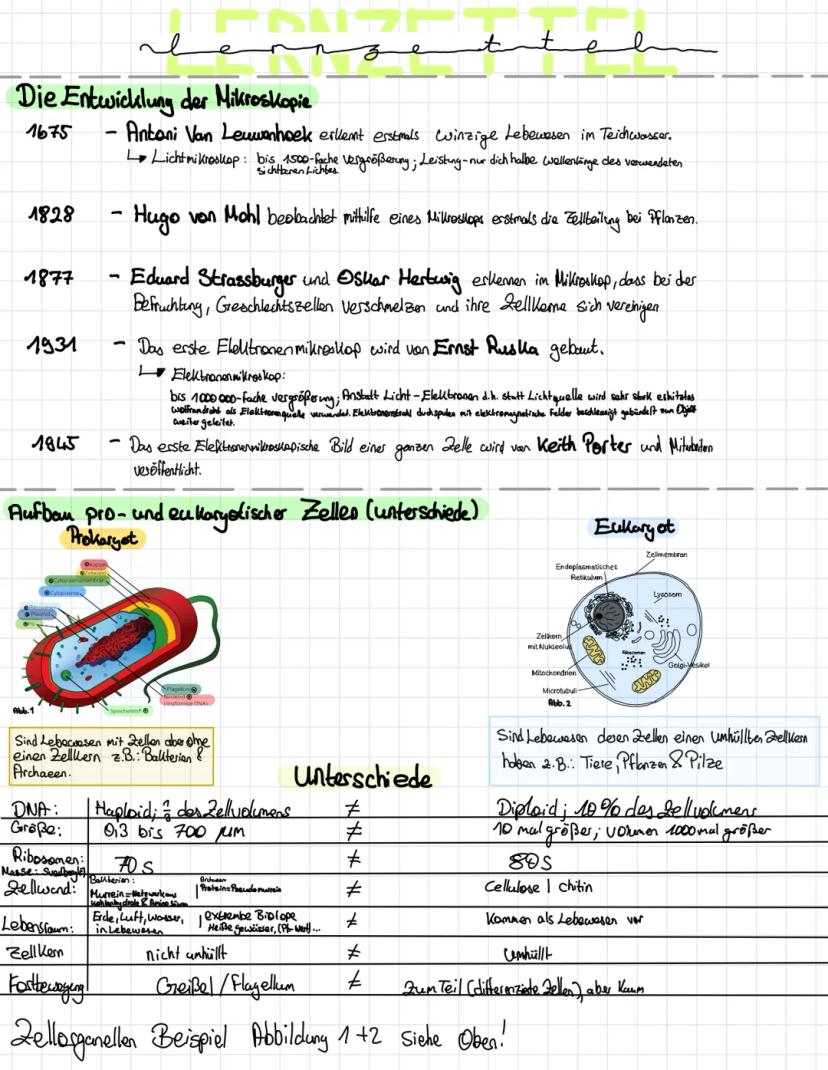 LERNZETTEL
lernzettel
Die Entwicklung der Mikroskopie
1675 - Antoni Van Leuwenhoek erkennt erstmals winzige Lebewesen im Teichwasser.
↳ Lichtmikroskop: bis 1500-fache Vergrößerung; Leistung-nur dich halbe Wellenlänge des verwendeten
sichtbaren Lichtes
1828 - Hugo von Mohl beobachtet mithilfe eines Mikroskops erstmals die Zellteilung bei Pflanzen.
1877 - Eduard Strassburger und Oskar Hertwig erkennen im Mikroskop, dass bei der
Befruchtung, Geschlechtszellen verschmelzen und ihre Zellkerne sich vereinigen
1931 - Das erste Elektronenmikroskop wird von Ernst Ruska gebaut.
↳ Elektronenmikroskop:
bis 1000 000-fache vergrößerung; Anstatt Licht - Elektronen d.h. statt Lichtquelle wird sehr stark erhitztes
Wolframdraht als Elektronenquelle verwendet. Elektronenstrahl durchspulen mit elektromagnetische Felder beschleunigt gebündelt zum Objekt
weiter geleitet.
1945 - Das erste Elektronenmikroskopische Bild einer ganzen Zelle wird von Keith Porter und Mitarbeiten
veröffentlicht.
Aufbau pro- und eukaryotischer Zellen (unterschiede)
Prokaryot
Eukaryot
Kapsel
Zellwand
Cytoplasmamembran
Cytoplasma
Ribosomen
Plasmid
Pili
Flagellum
Nucleoid
(ringförmige DNA)
Speicherstoff
Abb.1
Zellmembran
Endoplasmatisches
Retikulum
Lysosom
Zellkern
mit Nukleolus
Ribosomen
Golgi-Vesikel
Mitochondrien
Microtubuli
Abb. 2
Sind Lebewesen mit Zellen aber ohne
einen Zellkern z.B.: Bakterien &
Archaeen.
Sind Lebewesen deren Zellen einen umhüllten Zellkern
haben z.B.: Tiere, Pflanzen & Pilze
Unterschiede
DNA: Haploid; des Zellvolumens ≠ Diploid; 10% des Zellvolumens
Größe: 0,3 bis 700 µm ≠ 10 mal größer; volumen 1000 mal größer
Ribosomen: 70 S ≠ 80S
Masse:
Zellwand: Bakterien: Murrein = Netzwerk aus Kohlenhydrate & Aminosäuren | Archaeen Protein = Pseudomurrein ≠ Cellulose | chitin
Lebensraum: Erde, Luft, Wasser, in Lebewesen | extrembe Biotope Heiße gewässer, (Ph-Wert)... ≠ Kommen als Lebewesen vor
Zellkern nicht umhüllt ≠ Umhüllt
Fortbewegung Geißel / Flagellum ≠ Zum Teil (differenziete Zellen) aber kaum
Zellorganellen Beispiel Abbildung 1+2 siehe Oben!